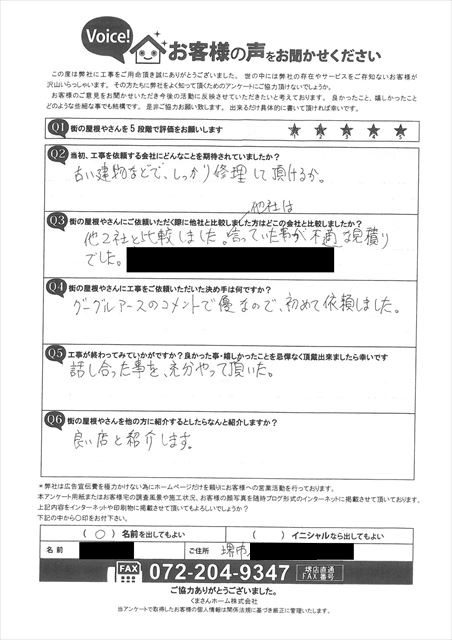 Voice!
お客様の声をお聞かせください
この度は弊社に工事をご用命頂き誠にありがとうございました。世の中には弊社の存在やサービスをご存知ないお客様が
沢山いらっしゃいます。その方たちに弊社をよく知って頂くためのアンケートにご協力頂けないでしょうか。
お客様のご意見をお聞かせいただき今後の活動に反映させていただきたいと考えております。良かったこと、嬉しかったこと
どのような些細な事でも結構です。是非ご協力お願い致します。出来るだけ具体的に書いて頂ければ幸いです。
Q1 街の屋根やさんを5段階で評価をお願いします
1 2 3 4 5
Q2 当初、工事を依頼する会社にどんなことを期待されていましたか?
古い建物などで、しっかり修理して頂けるか。
Q3 街の屋根やさんにご依頼いただく際に他社と比較しました方はどこの会社と比較しましたか?
他社は
他2社と比較しました。言っていた事が不適な見積り
でした。
Q4 街の屋根やさんに工事をご依頼いただいた決め手は何ですか?
グーグルアースのコメントで優なので、初めて依頼しました。
Q5 工事が終わってみていかがですか?良かった事・嬉しかったことを忌憚なく頂戴出来ましたら幸いです
話し合った事を、充分やって頂いた。
Q6 街の屋根やさんを他の方に紹介するとしたらなんと紹介しますか?
良い店と紹介します。
*弊社は広告宣伝費を極力かけない為にホームページだけを頼りにお客様への営業活動を行っております。
本アンケート用紙またはお客様宅の調査風景や施工状況、お客様の顔写真を随時ブログ形式のインターネットに掲載させて頂いております。
上記内容をインターネットや印刷物に掲載させて頂いてもよろしいでしょうか?
下記の中から〇印をお付下さい。
(〇)名前を出してもよい
( )イニシャルなら出してもよい
名前
ご住所 堺市
FAX 072-204-9347 堺店直通
FAX番号
ご協力ありがとうございました。
くまさんホーム株式会社
当アンケートで取得したお客様の個人情報は関係法規に基づき厳正に管理いたします。